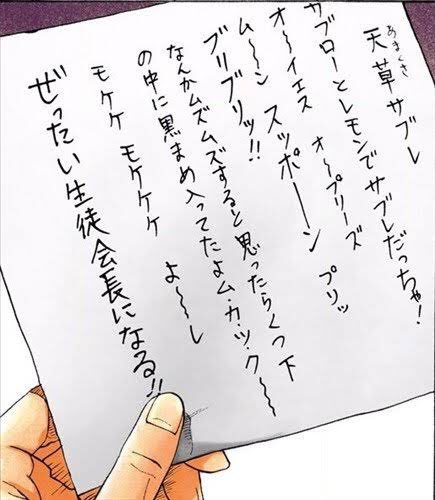 あまくさ
天草サブレ
サブローとレモンでサブレだっちゃ!
オ〜プリーズ プリッ
オ〜イエス
ム〜ン スッポーン
ブリブリッ!!
なんかムズムズすると思ったらくつ下
の中に黒まめ入ってたよム・カ・ツ・ク〜〜
モケケ モケケケ よ〜〜し
ぜったい生徒会長になる!!